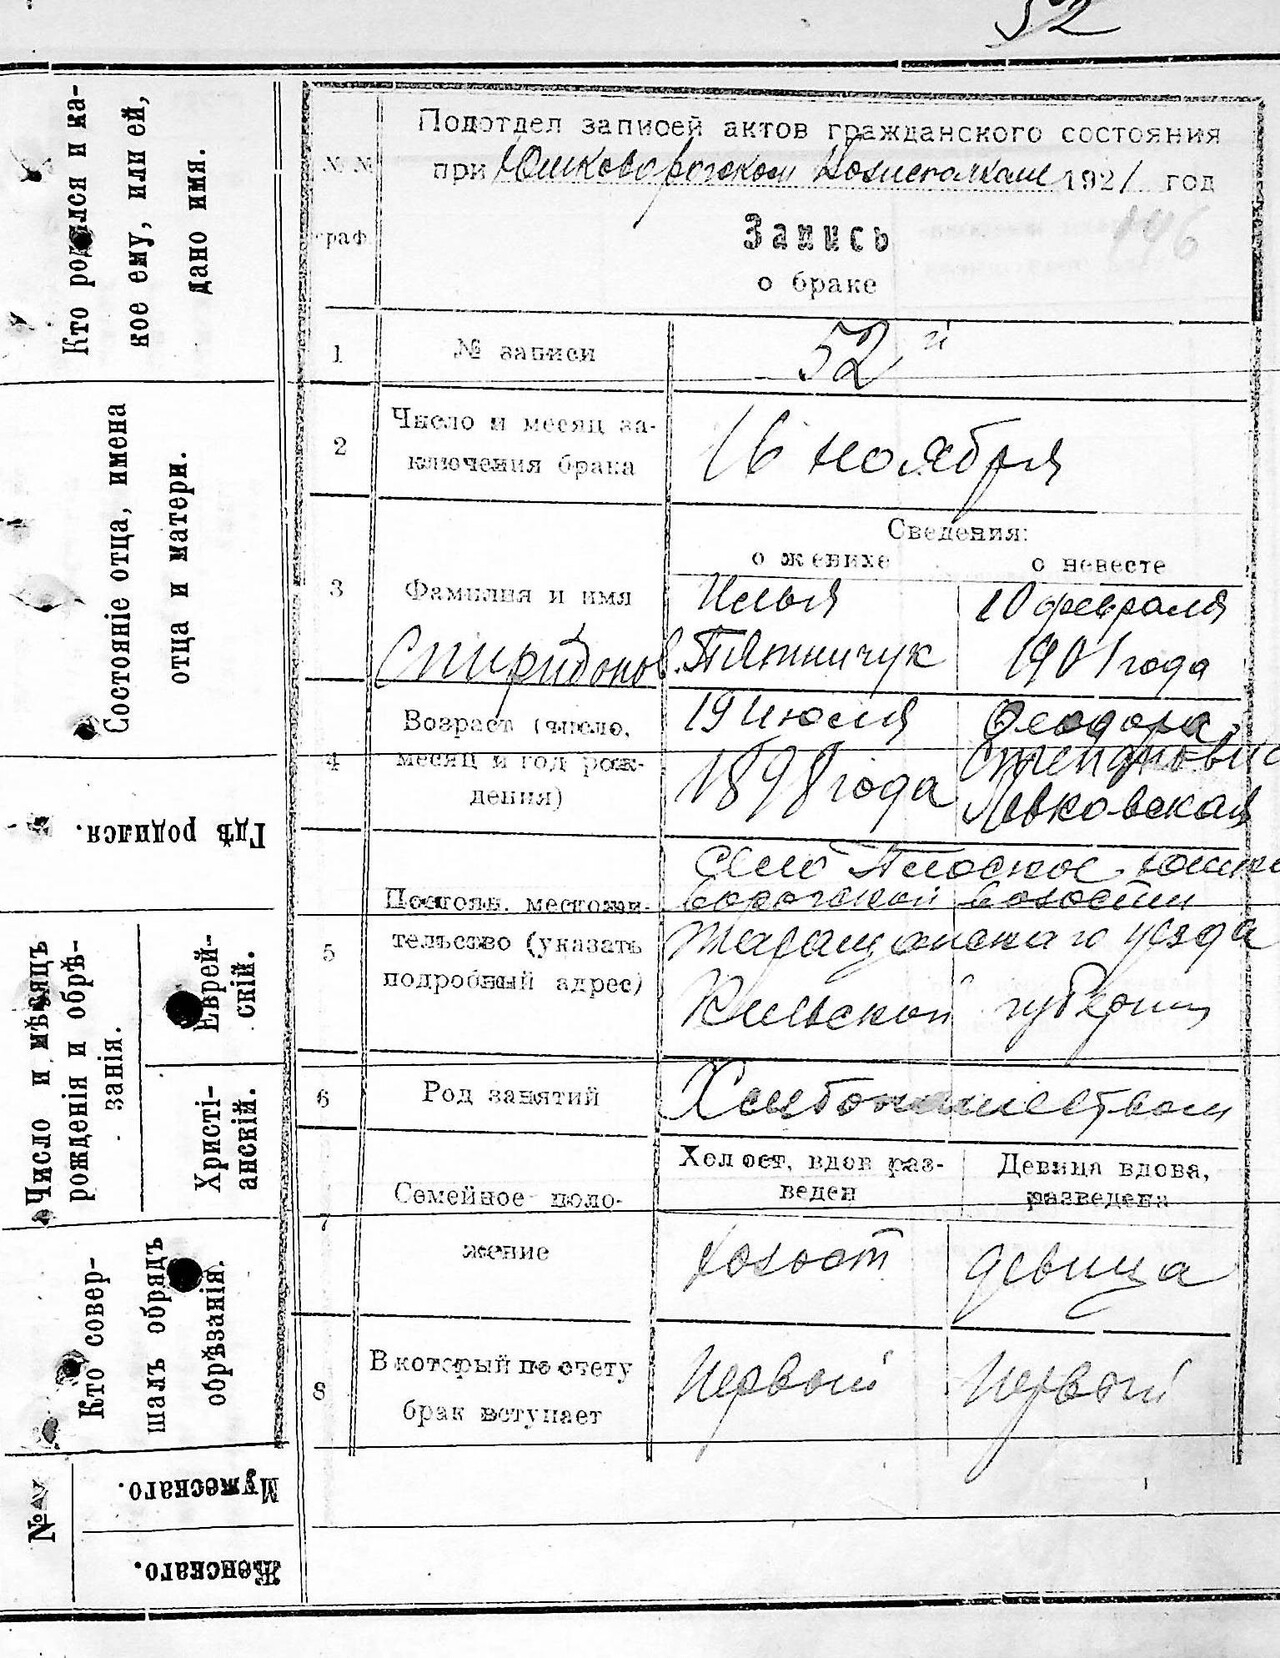 52
Кто родился и ка-
кое ему, или ей,
дано имя.
Состояніе отца, имена
отца и матери.
Гдѣ родился.
Число и мѣсяцъ
рожденія и обрѣ-
занія.
Еврей-
скій.
Христі-
анскій.
Кто совер-
шалъ обрядъ
обрѣзанія.
№
Мужескаго.
Женскаго.
№ №
граф
Подотдел записей актов гражданского состояния
при 1921 год
146
Запись
о браке
1
№ записи
52й
2
Число и месяц за-
ключения брака
16 ноября
Сведения:
о женихе
о невесте
3
Фамилия и имя
Спиридонов.
Илья
Пятничук
10 февраля
1901 года
4
Возраст (число,
месяц и год рож-
дения)
19 июля
1898 года
Феодора
Степановна
Левковская
5
Постоян. местожи-
тельство (указать
подробный адрес)
Село Плоское Юшко
ворогской волости
Таращанскаго уезда
Киевской губернии
6
Род занятий
Хлебопашеством
7
Семейное поло-
жение
Холост, вдов раз-
веден
Девица вдова,
разведена
холост
девица
8
В который по счету
брак вступает
Первый
Первый